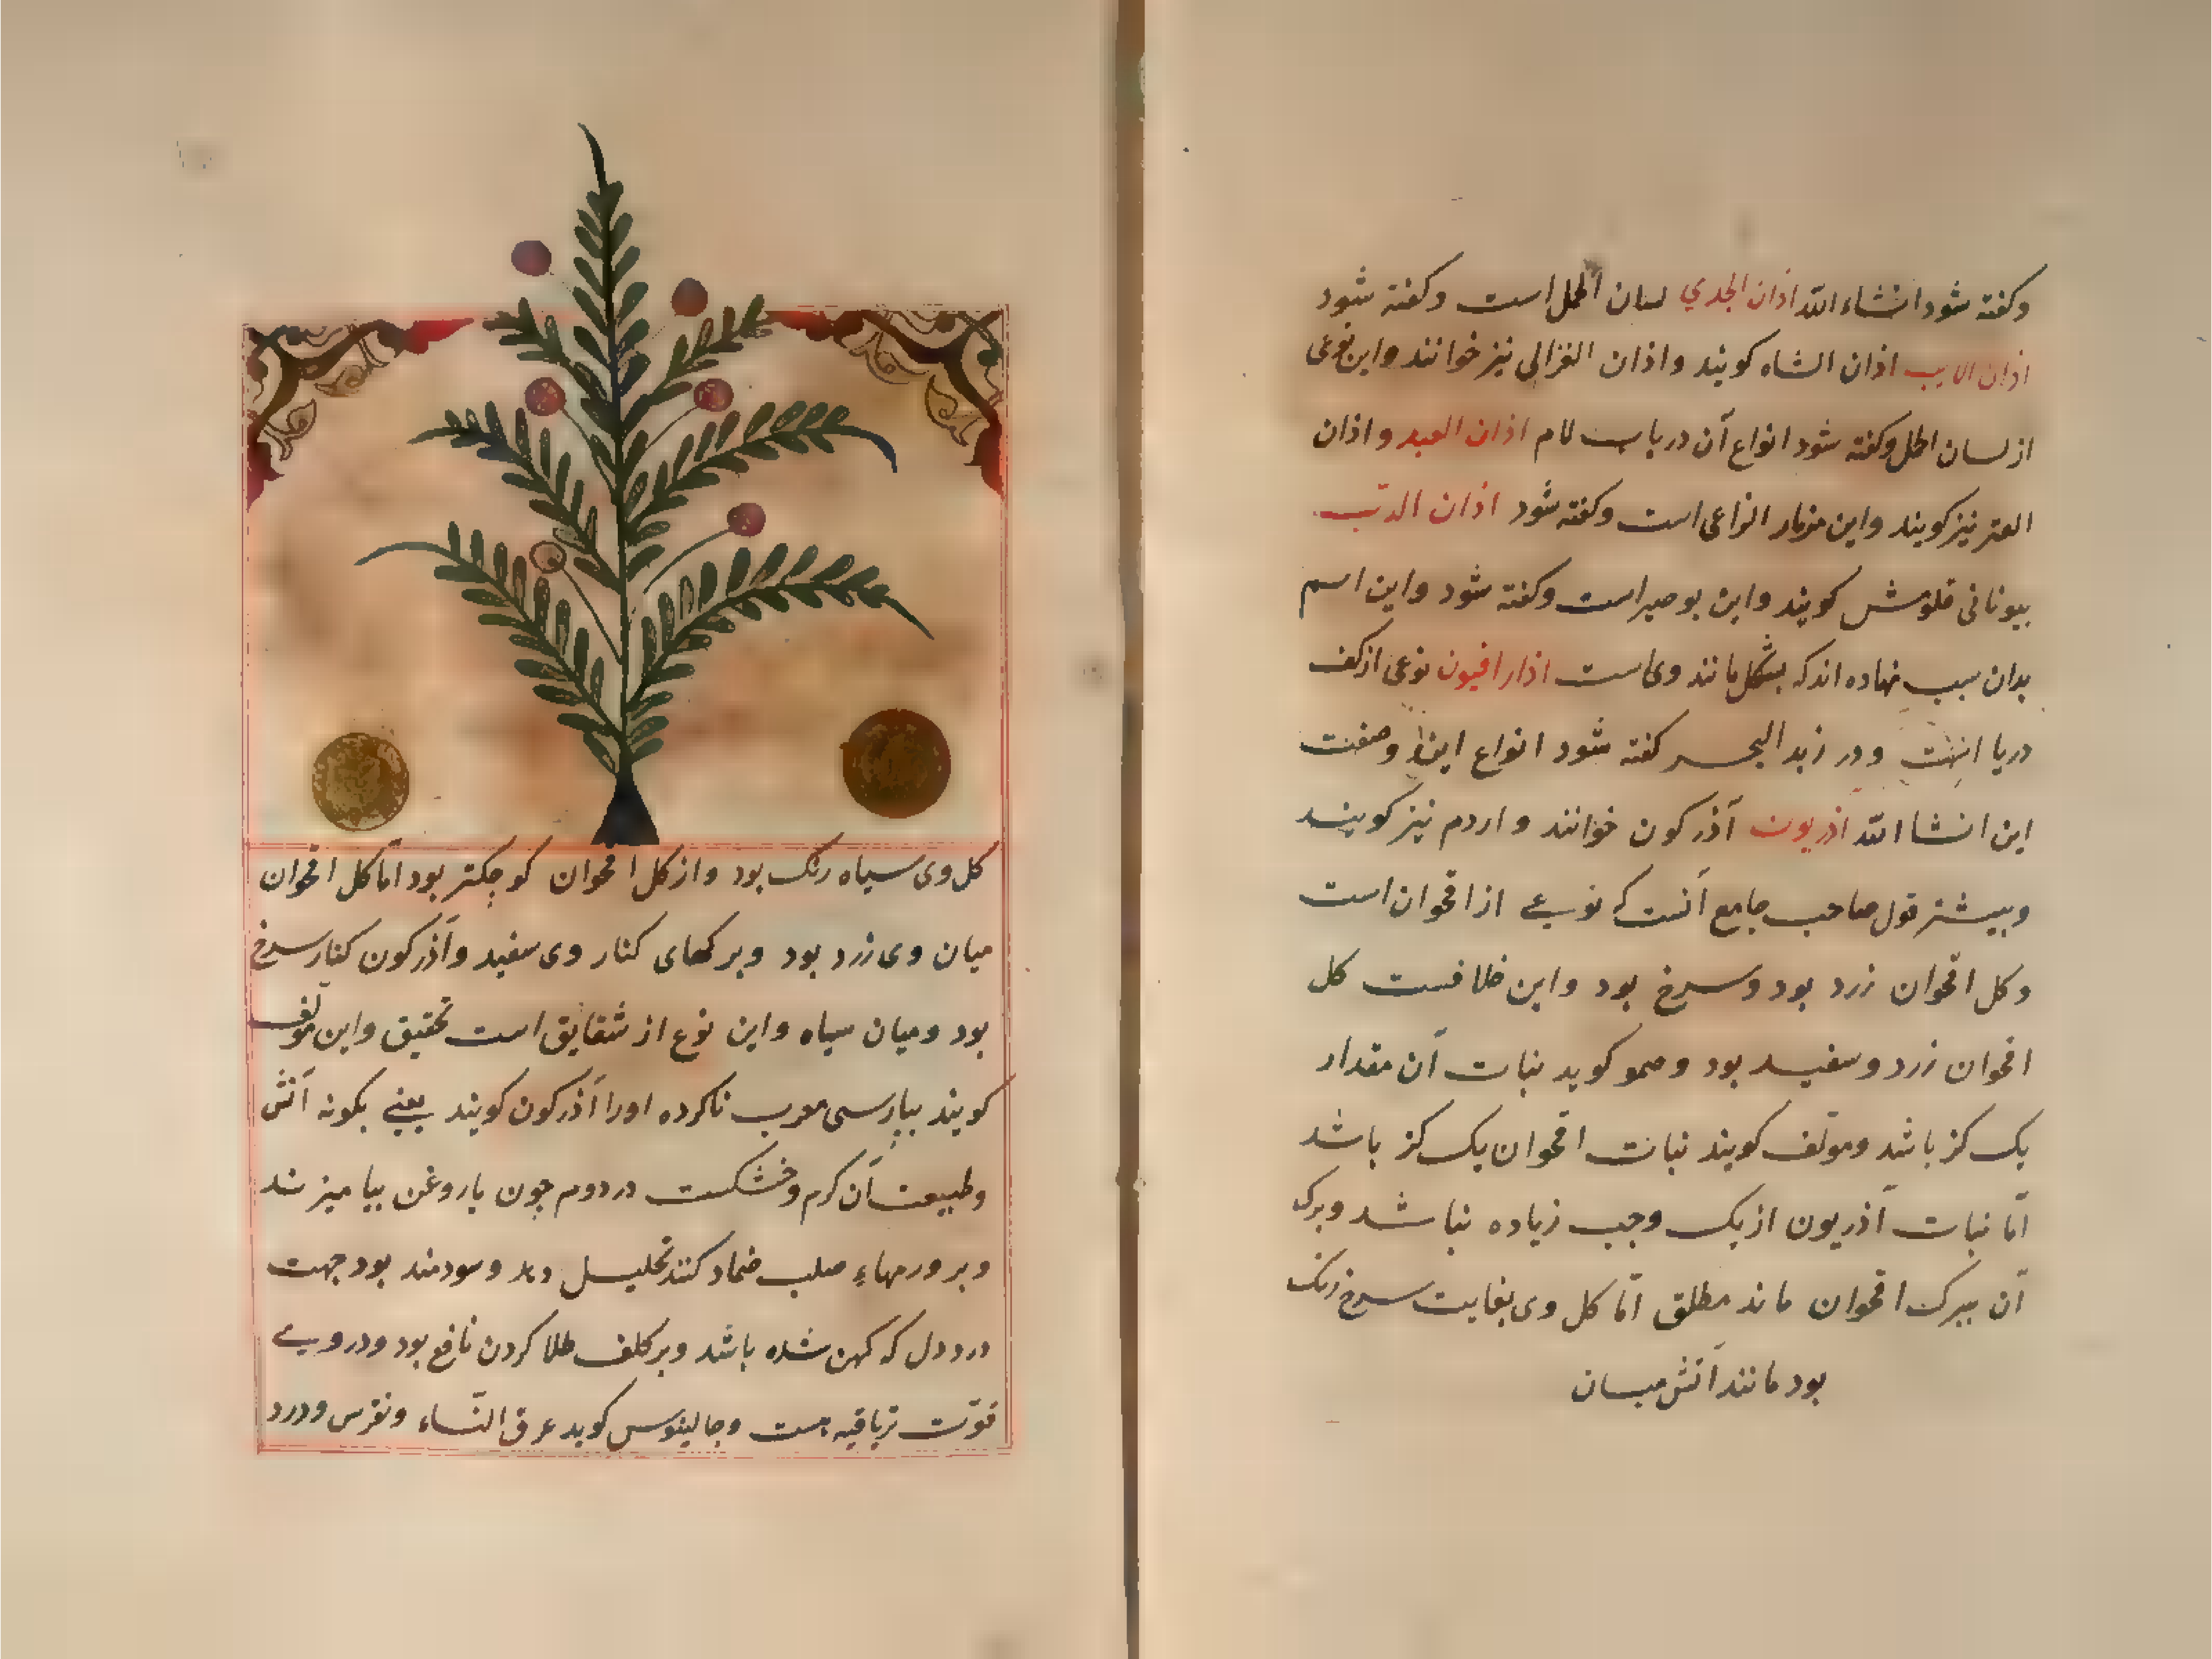 وکفته شود انشاء الله اذان الجدي لسان الحمل است وکفته شود
اذان الارنب اذان الشاه کویند واذان الغزالی نیز خوانند واین نوعی
از لسان الحمل وکفته شود انواع آن در باب لام اذان العبد واذان
العنز نیز کویند واین مزمار الراعی است وکفته شود اذان الدب
بیونانی فلومش کویند واین بوصیر است وکفته شود واین اسم
بدان سبب نهاده اند که بشکل مانند وی است اذارافیون نوعی از کف
دریا است ودر زبد البحر کفته شود انواع این وصفت
این انشا الله آذریون آذرکون خوانند واردم نیز کویند
وبیشتر قول صاحب جامع آنست که نوعی از اقحوان است
وکل اقحوان زرد بود وسرخ بود واین خلافست کل
اقحوان زرد وسفید بود وهمو کوید نبات آن مقدار
یک کز باشد ومولف کویند نبات اقحوان یک کز باشد
اما نبات آذریون از یک وجب زیاده نباشد وبرک
آن ببرک اقحوان ماند مطلق اما کل وی بغایت سرخ رنک
بود مانند آتش میان
کل وی سیاه رنک بود واز کل اقحوان کوچکتر بود اما کل اقحوان
میان وی زرد بود وبرکهای کنار وی سفید وآذرکون کنار سرخ
بود ومیان سیاه واین نوع از شقایق است تحقیق واین مولف
کویند بپارسی معرب ناکرده اورا آذرکون کویند یعنی بکونه آتش
وطبیعت آن کرم وخشکست در دوم چون باروغن بیامیزند
وبر ورمهاء صلب ضماد کنند تحلیل دهد وسودمند بود جهت
درد دل که کهن شده باشد وبر کلف طلا کردن نافع بود ودر ویی
قوت تریاقیه هست وجالینوس کوید عرق النساء ونقرس ودرد